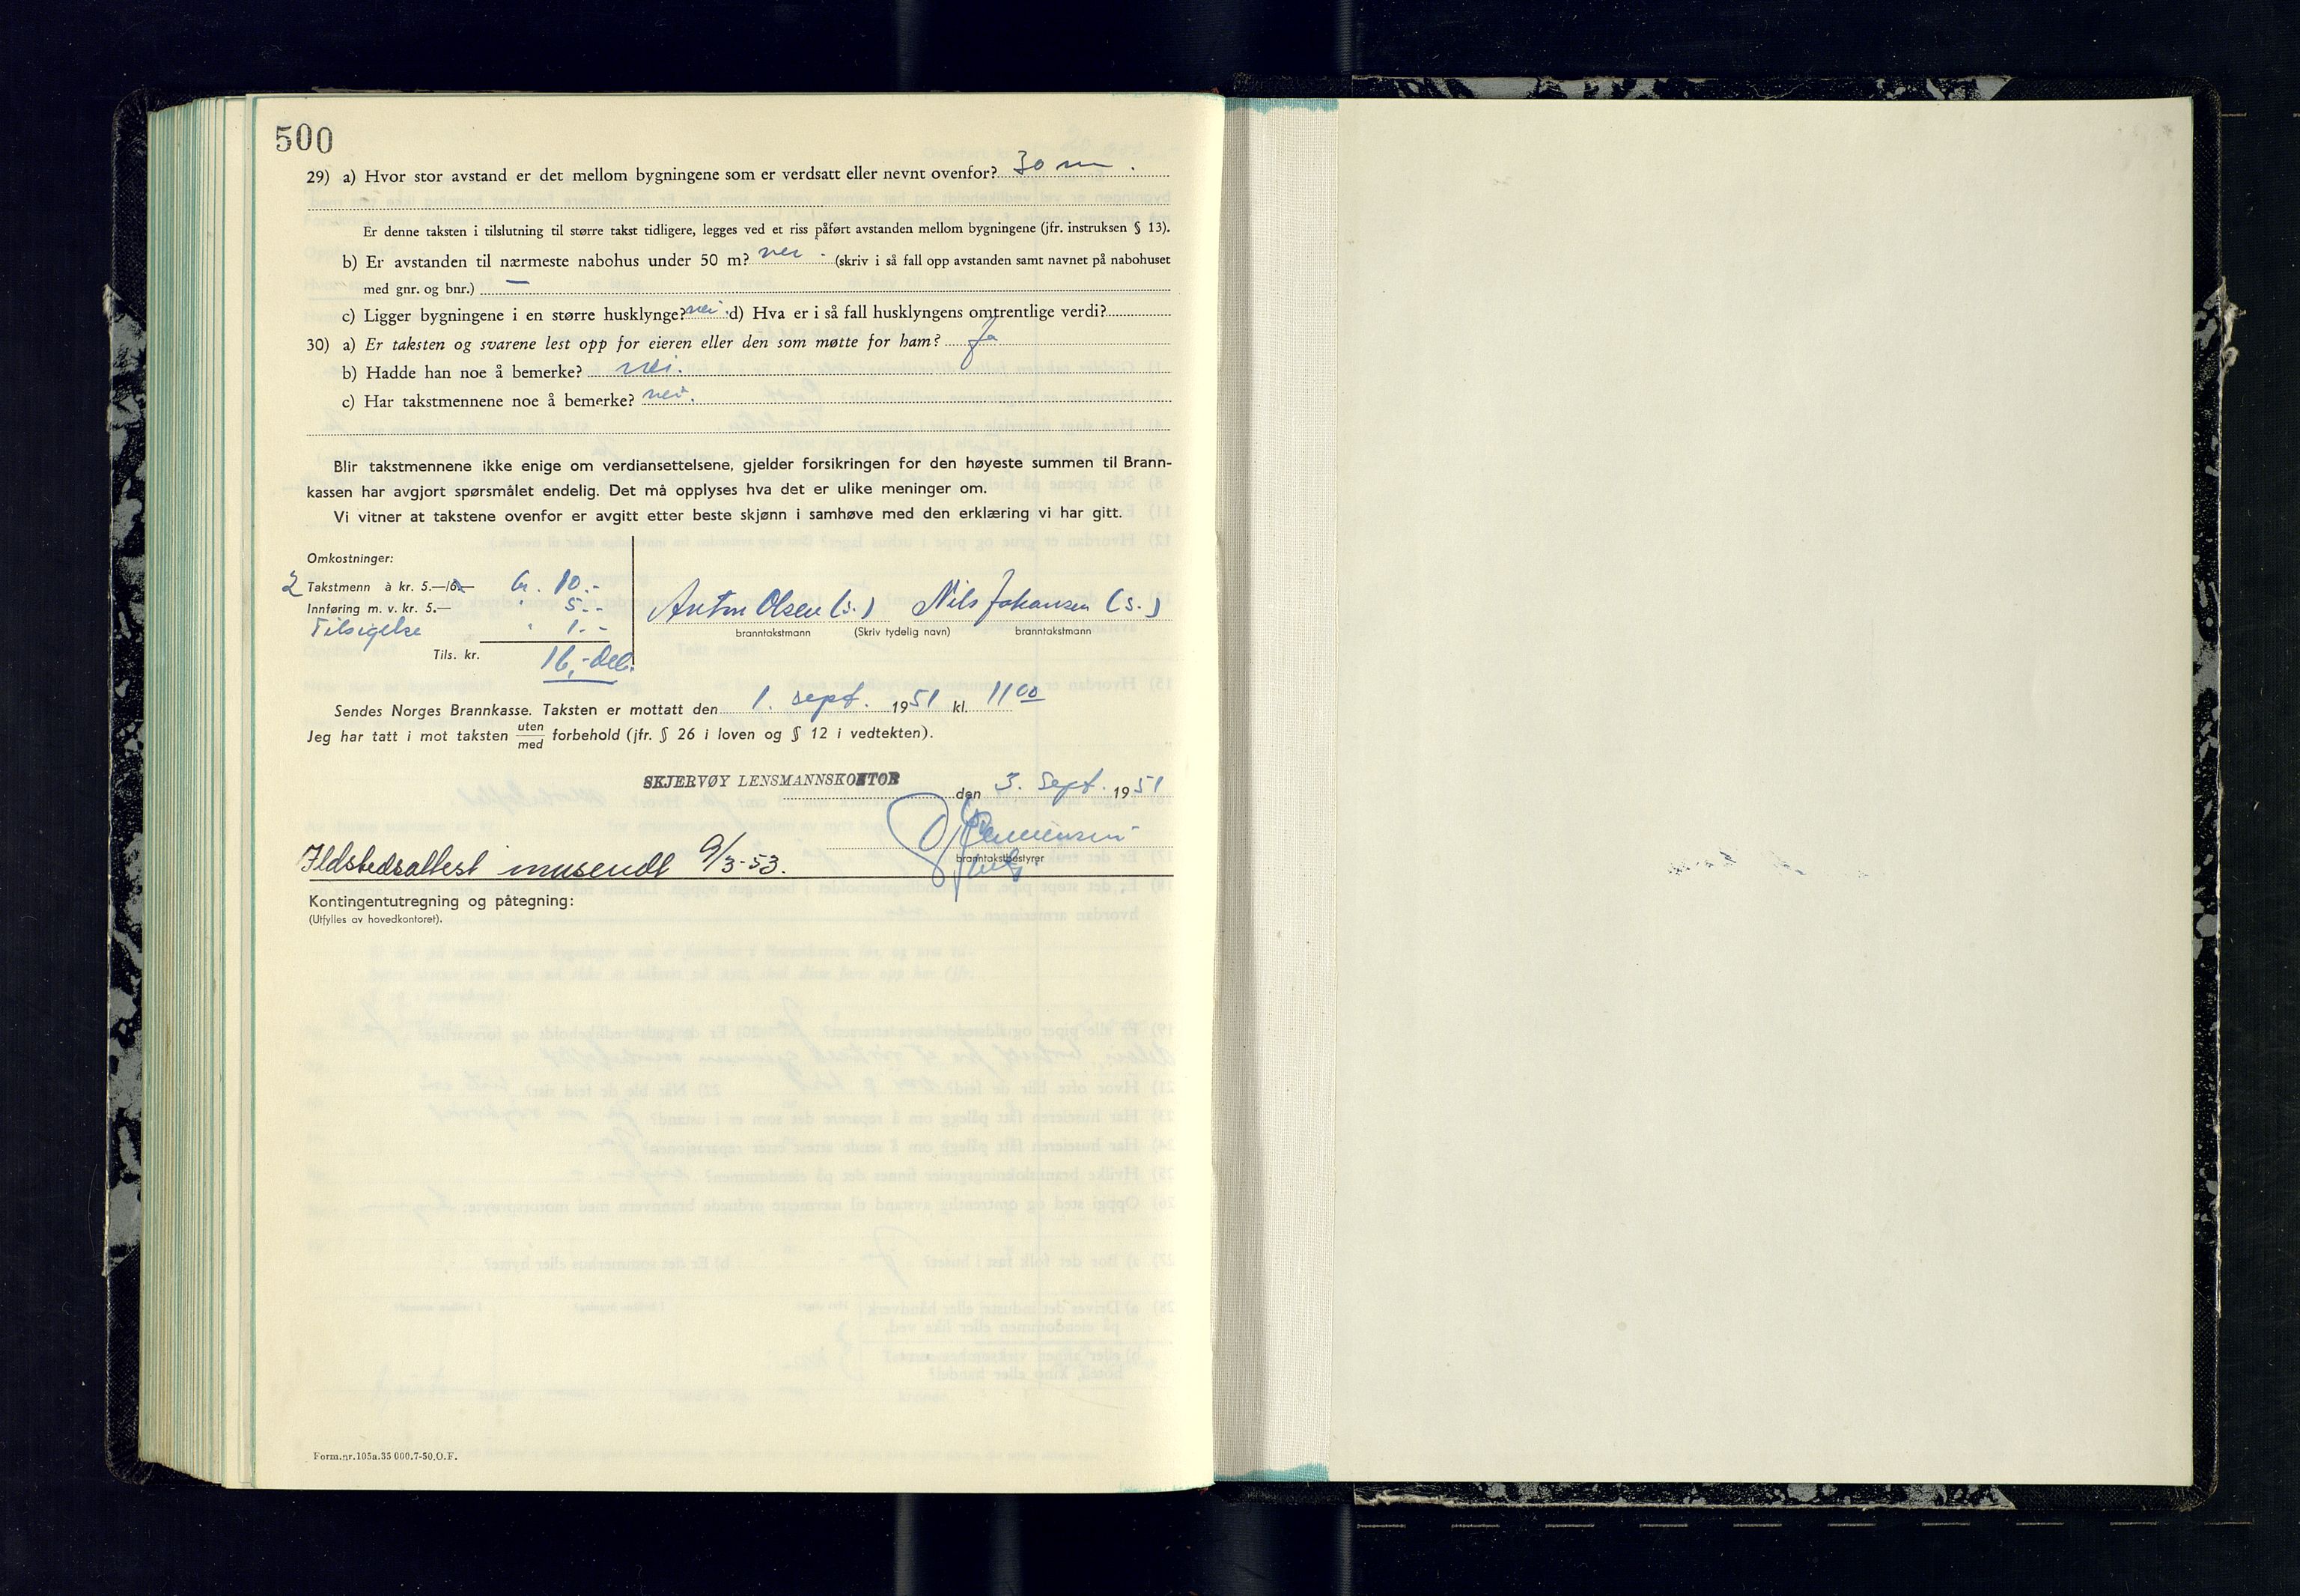 500
29) a) Hvor stor avstand er det mellom bygningene som er verdsatt eller nevnt ovenfor? 30 m.
Er denne taksten i tilslutning til større takst tidligere, legges ved et riss påført avstanden mellom bygningene (jfr. instruksen § 13).
b) Er avstanden til nærmeste nabohus under 50 m? nei. (skriv i så fall opp avstanden samt navnet på nabohuset
med gnr. og bnr.) —
c) Ligger bygningene i en større husklynge? nei. d) Hva er i så fall husklyngens omtrentlige verdi?
30) a) Er taksten og svarene lest opp for eieren eller den som møtte for ham? Ja
b) Hadde han noe å bemerke? nei.
c) Har takstmennene noe å bemerke? nei.
Blir takstmennene ikke enige om verdiansettelsene, gjelder forsikringen for den høyeste summen til Brann-
kassen har avgjort spørsmålet endelig. Det må opplyses hva det er ulike meninger om.
Vi vitner at takstene ovenfor er avgitt etter beste skjønn i samhøve med den erklæring vi har gitt.
Omkostninger:
2 Takstmenn à kr. 5.—/6.— kr. 10.-
Innføring m. v. kr. 5.— " 5.-
Tilsigelse " 1.-
Tils. kr. 16,-
Anton Olsen (s.) Nils Johansen (s.)
branntakstmann (Skriv tydelig navn) branntakstmann
Sendes Norges Brannkasse. Taksten er mottatt den 1. sept. 1951 kl. 11 00
Jeg har tatt i mot taksten uten/med forbehold (jfr. § 26 i loven og § 12 i vedtekten).
SKJERVØY LENSMANNSKONTOR den 3. Sept. 1951
branntakstbestyrer
Ildstedsattest innsendt 9/3-53.
Kontingentutregning og påtegning:
(Utfylles av hovedkontoret).
Form.nr.105a.35 000.7-50.O.F.